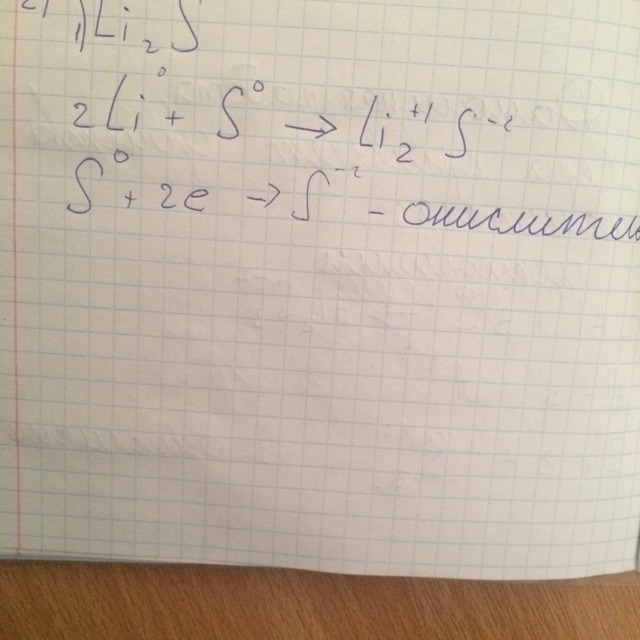 2) 1) Li₂S
2Li⁰ + S⁰ → Li₂⁺¹S⁻²
S⁰ + 2e → S⁻² - окислитель